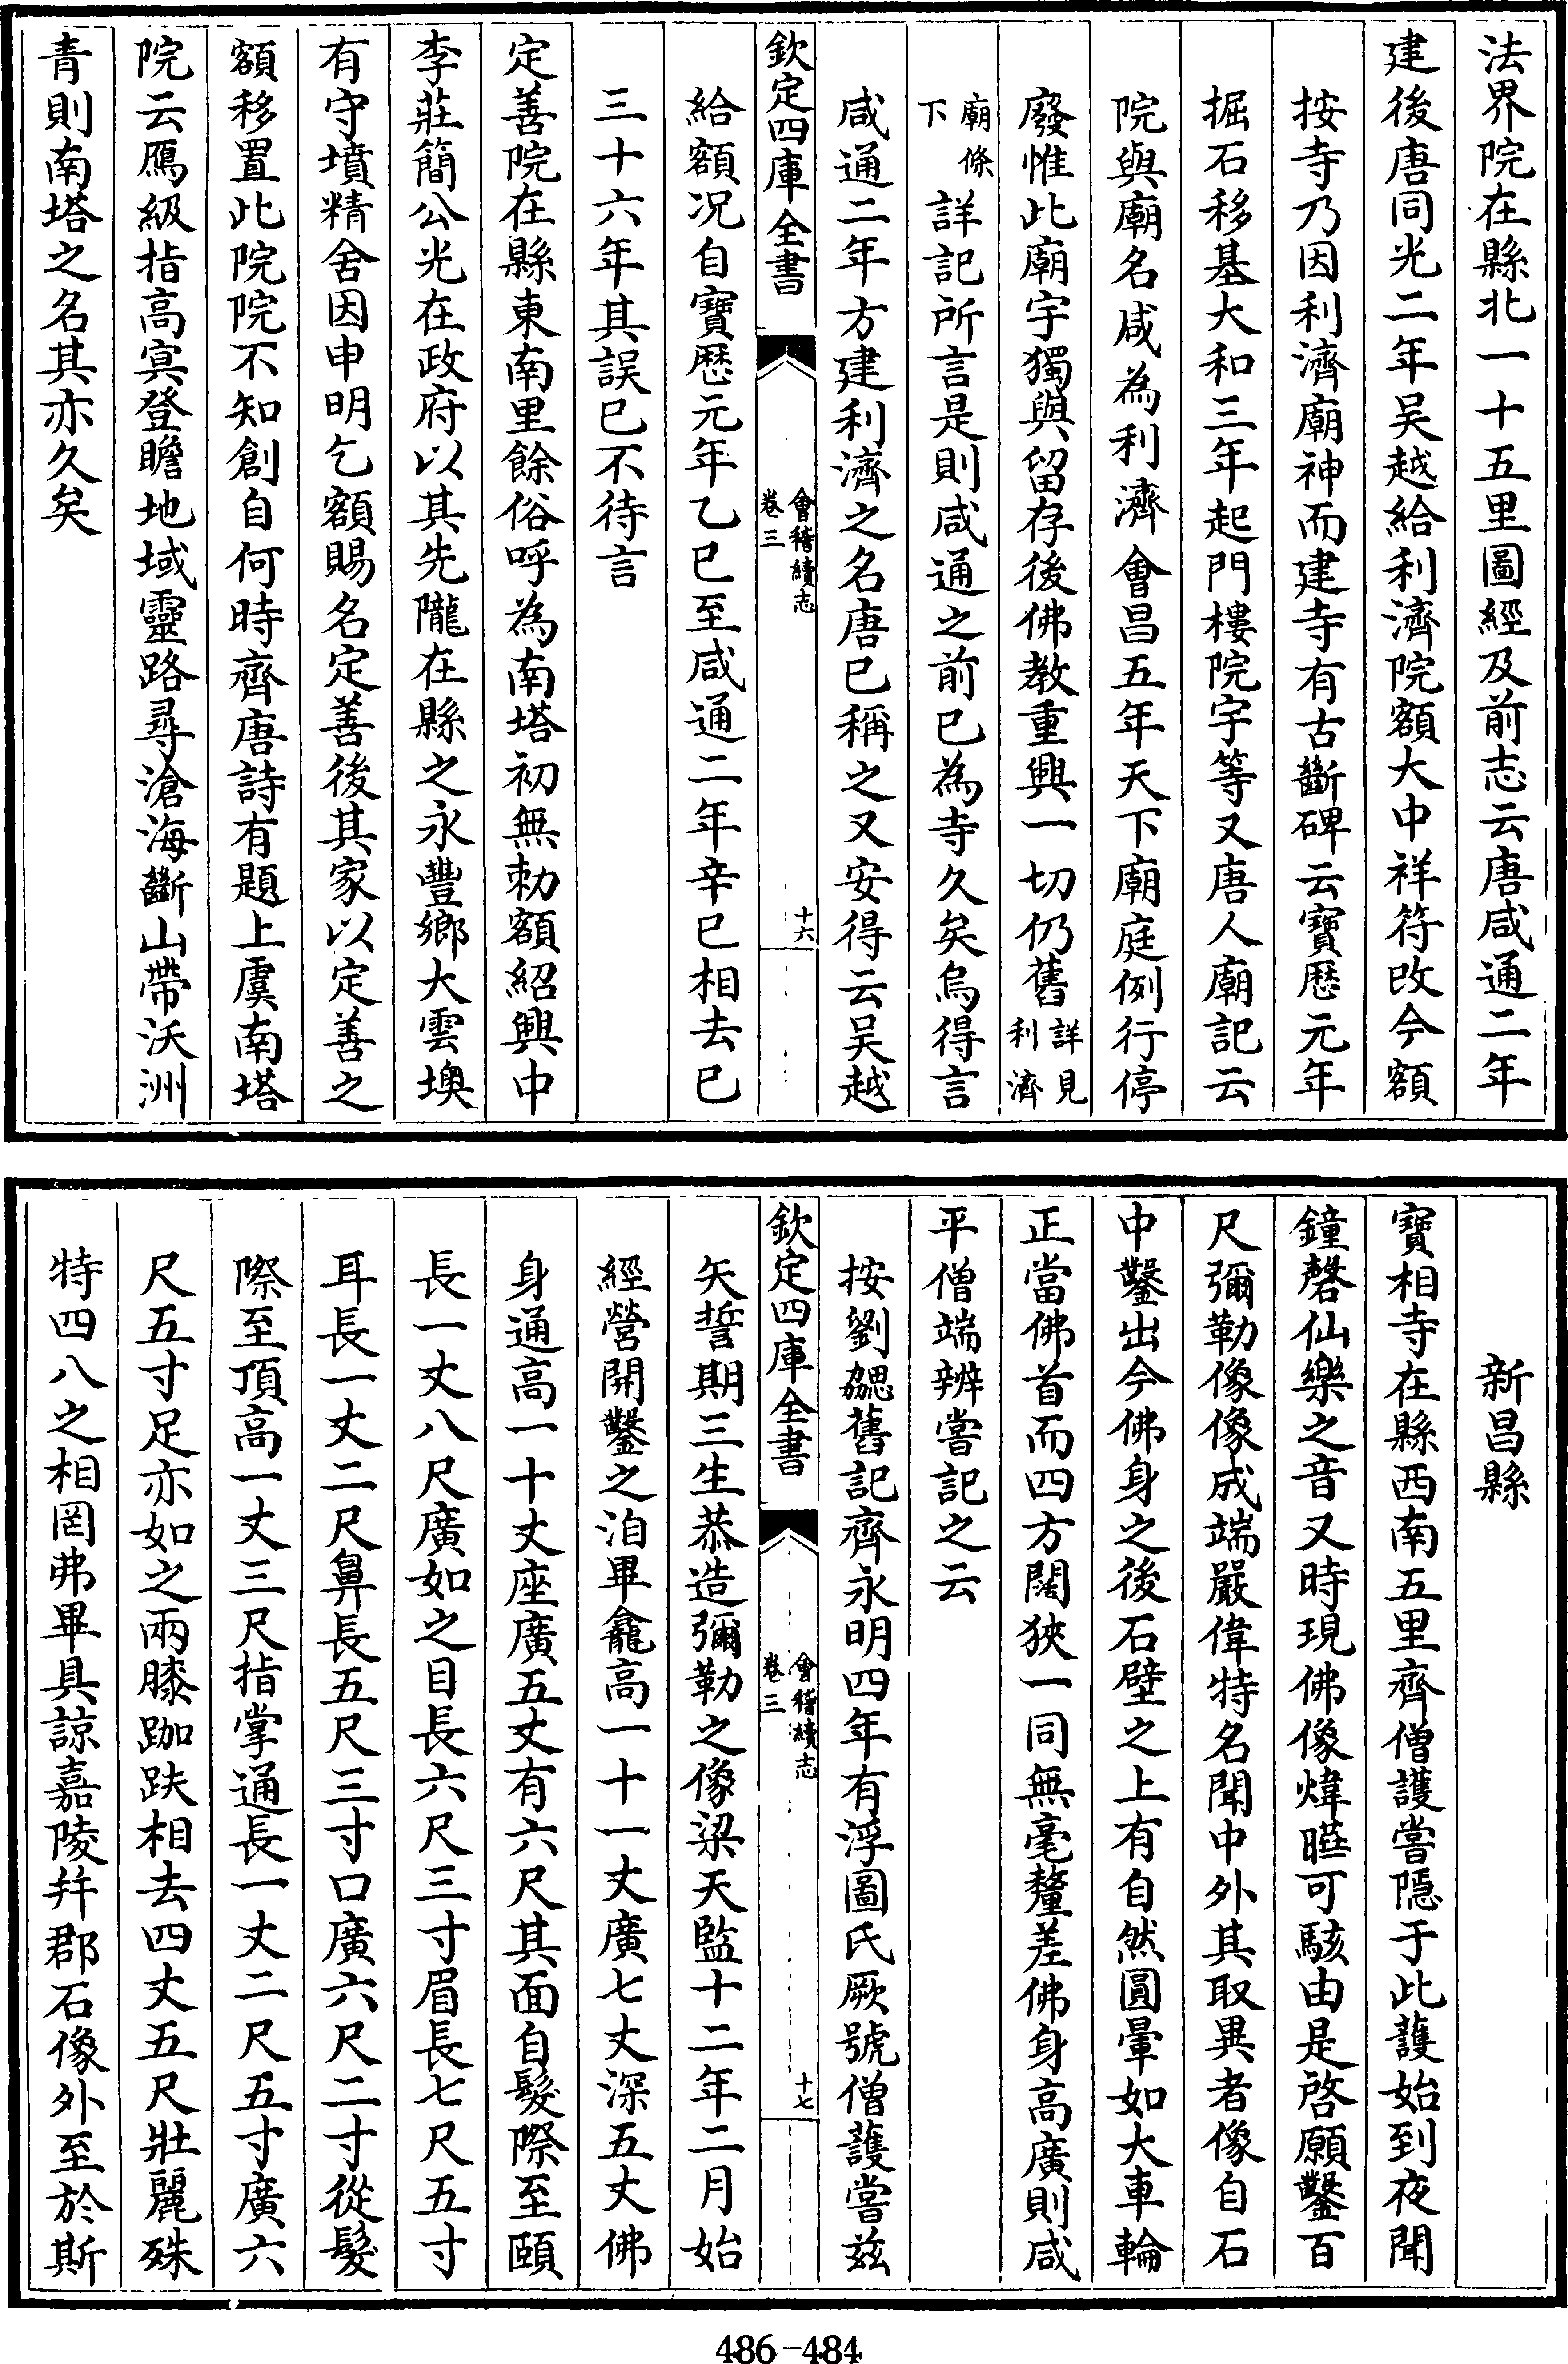 法界院在縣北一十五里圖經及前志云唐咸通二年
建後唐同光二年吴越給利濟院額大中祥符改今額
按寺乃因利濟廟神而建寺有古斷碑云寳厯元年
掘石移基大和三年起門樓院宇等又唐人廟記云
院與廟名咸為利濟會昌五年天下廟庭例行停
廢惟此廟宇獨與留存後佛教重興一切仍舊詳見利濟
廟條下詳記所言是則咸通之前已為寺久矣烏得言
咸通二年方建利濟之名唐已稱之又安得云吴越
欽定四庫全書
會稽續志
卷三
十六
給額况自寳厯元年乙巳至咸通二年辛巳相去已
三十六年其誤已不待言
定善院在縣東南里餘俗呼為南塔初無勅額紹興中
李莊簡公光在政府以其先隴在縣之永豐鄉大雲墺
有守墳精舍因申明乞額賜名定善後其家以定善之
額移置此院院不知創自何時齊唐詩有題上虞南塔
院云鴈級指高寘登瞻地域靈路尋滄海斷山帶沃洲
青則南塔之名其亦久矣
新昌縣
寳相寺在縣西南五里齊僧護嘗隠于此護始到夜聞
鐘磬仙樂之音又時現佛像煒曄可駭由是啓願鑿百
尺彌勒像像成端嚴偉特名聞中外其取異者像自石
中鑿出今佛身之後石壁之上有自然圓暈如大車輪
正當佛首而四方闊狹一同無毫釐差佛身高廣則咸
平僧端辨嘗記之云
按劉勰舊記齊永明四年有浮圖氏厥號僧護嘗兹
欽定四庫全書
會稽續志
卷三
十七
矢誓期三生恭造彌勒之像梁天監十二年二月始
經營開鑿之洎畢龕高一十一丈廣七丈深五丈佛
身通高一十丈座廣五丈有六尺其面自髪際至頤
長一丈八尺廣如之目長六尺三寸眉長七尺五寸
耳長一丈二尺鼻長五尺三寸口廣六尺二寸從髪
際至頂高一丈三尺指掌通長一丈二尺五寸廣六
尺五寸足亦如之兩膝跏趺相去四丈五尺壯麗殊
特四八之相罔弗畢具諒嘉陵并郡石像外至於斯
486-484